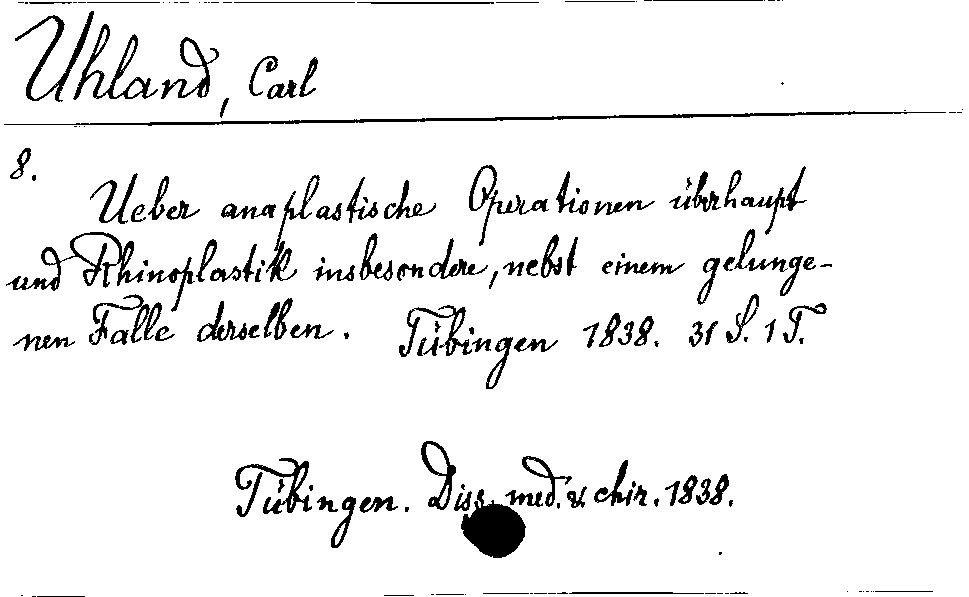 Uhland, Carl
8.
Ueber anaplastische Operationen überhaupt
und Rhinoplastik insbesondere, nebst einem gelunge-
nen Falle derselben. Tübingen 1838. 31 S. 1 T.
Tübingen. Diss. med. & chir. 1838.